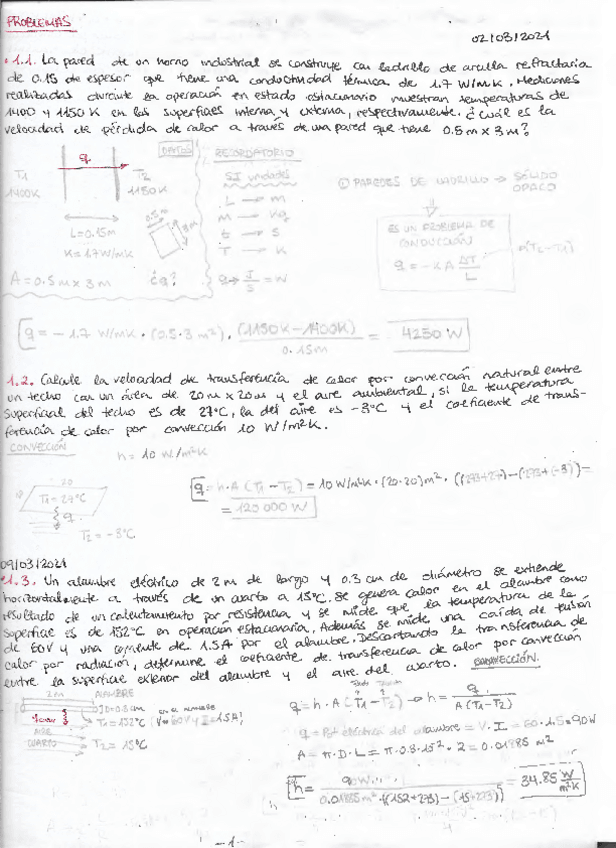 PROBLEMAS
02/03/2021
1.1. La pared de un horno industrial se construye con ladrillo de arcilla refractaria
de 0.15 de espesor que tiene una conductividad térmica de 1.7 W/mK. Mediciones
realizadas durante la operación en estado estacionario muestran temperaturas de
1400 y 1150 K en las superficies interna y externa, respectivamente. ¿Cuál es la
velocidad de pérdida de calor a través de una pared que tiene 0.5 m x 3 m?
DATOS
q
T1
1400K
T2
1150K
L=0.15m
K=1.7W/mK
0.5m
3m
A=0.5m x 3m
¿q?
RECORDATORIO
SI unidades
L → m
M → kg
t → s
T → K
q → J/s = W
① PAREDES DE LADRILLO → SÓLIDO
OPACO
ES UN PROBLEMA DE
CONDUCCIÓN
q = -KA ΔT/L
(T2-T1)
q = -1.7 W/mK · (0.5·3 m²) · (1150K-1400K)/0.15m = 4250 W
1.2. Calcule la velocidad de transferencia de calor por convección natural entre
un techo con un área de 20m x 20m y el aire ambiental, si la temperatura
superficial del techo es de 27°C, la del aire es -3°C y el coeficiente de trans-
ferencia de calor por convección 10 W/m²K.
CONVECCIÓN
h = 10 W/m²K
20
T1=27°C
q
T2=-3°C
q = h·A (T1-T2) = 10 W/m²K · (20·20) m² · ((273+27)-(273+(-3)) =
= 120 000 W
09/03/2021
1.3. Un alambre eléctrico de 2 m de largo y 0.3 cm de diámetro se extiende
horizontalmente a través de un cuarto a 15°C. Se genera calor en el alambre como
resultado de un calentamiento por resistencia y se mide que la temperatura de la
superficie es de 152°C en operación estacionaria. Además se mide una caída de tensión
de 60V y una corriente de 1.5A por el alambre. Descartando la transferencia de
calor por radiación, determine el coeficiente de transferencia de calor por convección
entre la superficie exterior del alambre y el aire del cuarto. CONVECCIÓN.
2m
ALAMBRE
D=0.3cm
T1=152°C (V=60V y I=1.5A)
AIRE
CUARTO
T2=15°C
q = h·A (T1-T2) → h = q/A(T1-T2)
q = Pot eléctrica del alambre = V·I = 60·1.5=90W
A = π·D·L = π·0.3·10⁻²·2 = 0.01885 m²
h = 90W/0.01885 m²·((152+273)-(15+273)) = 34.85 W/m²K
-1-